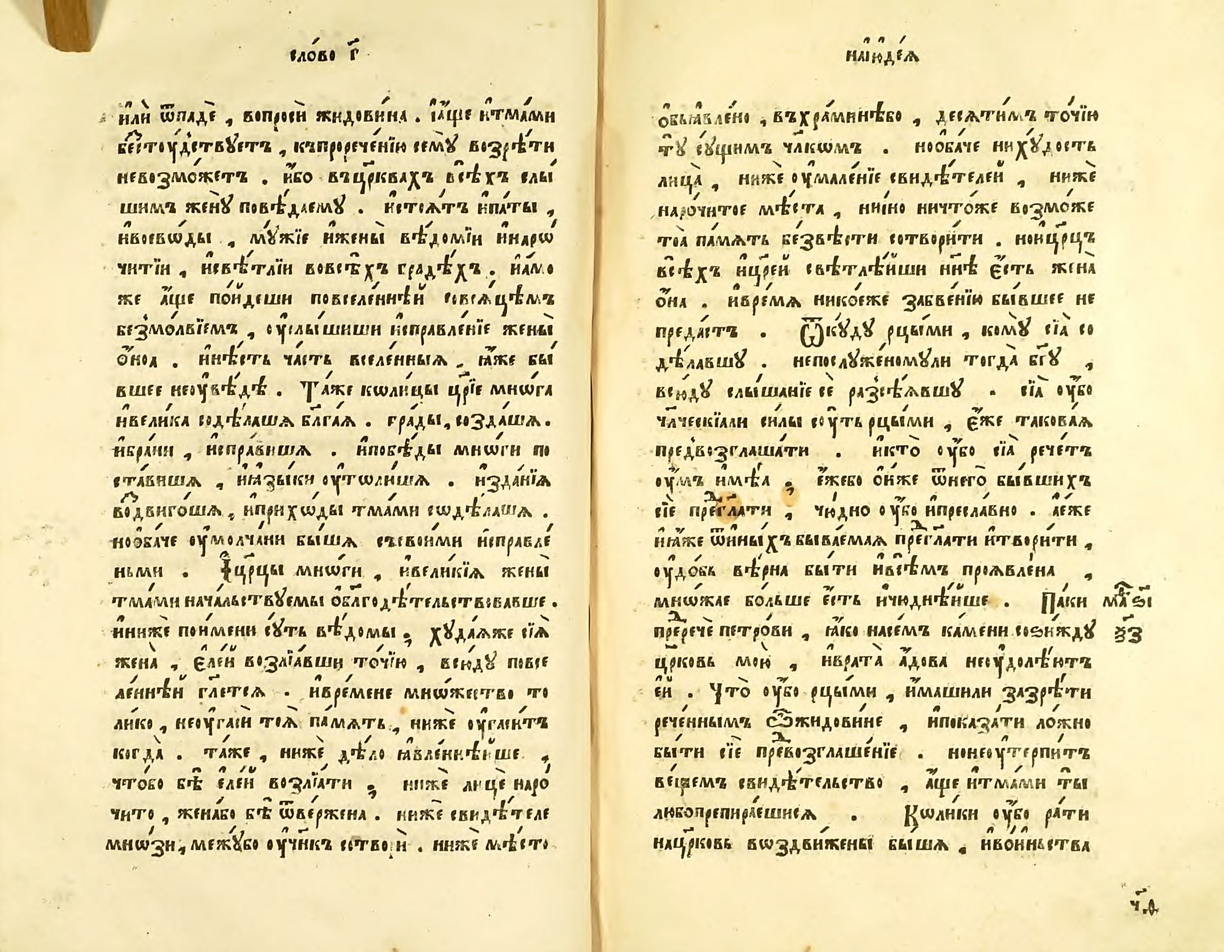 сло́во г҃
и҆лѝ ѿпадѐ , вопросѝ жидови́на . і҆а́ще и҆тма́ми
бестоу́дствꙋетъ , къпророче́нїю семꙋ̀ возрѣ́ти
невозмо́жетъ . и҆́бо въцр҃квахъ всѣ́хъ слы́
шимъ женꙋ̀ повѣ́даемꙋ . и҆стоѧ́тъ и҆па́ты ,
и҆воево́ды , мꙋ́жїе и҆жены̀ вѣ́домїи и҆нарѡ
чи́тїи , и҆свѣ́тлїи вовсѣ́хъ градѣ́хъ . и҆а́мо
же а҆́ще по́йдеши повселе́ннѣй совсѧ́цѣмъ
безмо́лвїемъ , оу҆слы́шиши и҆справле́нїе жены̀
о҆́ноѧ . и҆нѣ́сть ча́сть вселе́нныѧ , ꙗ҆́же бы́
вшее неоувѣ́дѣ . Та́же кѡли́цы цр҃їе мнѡ́га
и҆вели́ка содѣ́лашѧ бл҃га́ѧ . гра́ды, созда́шѧ .
и҆бра́ни , и҆спра́вишѧ . и҆побѣ́ды мнѡ́ги по
ста́вишѧ , и҆ꙗ҆зы́ки оу҆толи́шѧ . и҆зда́нїѧ
воздви́гошѧ , и҆прихѡ́ды тма́ми сѡдѣ́лашѧ .
нооба́че оу҆молча́ни бы́шѧ съсвои́ми и҆справле́
ньми . І҆цр҃цы мнѡ́ги , и҆вели́кїѧ жены̀
тма́ми нача́льствꙋемы о҆благодѣ́тельствовавше .
и҆ниже пои́мени сꙋ́ть вѣ́домы , хꙋда́ѧже сїѧ̀
жена̀ , є҆ле́й возлїа́вши то́чїю , всю́дꙋ повсе
ле́ннѣй гл҃етсѧ . и҆вре́мене мно́жество то
ли́ко , неоуга́си тоѧ̀ па́мѧть , нижѐ оу҆гаси́тъ
когда̀ . та́же , нижѐ дѣ́ло ꙗ҆вле́ннѣйше ,
что́бо бѣ̀ є҆ле́й возлїѧ́ти , нижѐ лицѐ наро́
чито , жена́бо бѣ̀ ѿве́ржена . нижѐ свидѣ́теле
мно́зи, межꙋ́бо оу҆ч҃никъ сотворѝ . нижѐ мѣ́сто
наі҆юде́ѧ
объꙗвле́но , въхра́минѣбо , десѧти́мъ то́чїю
тꙋ̀ сꙋ́щимъ чл҃кѡмъ . нооба́че нихꙋ́дость
лица̀ , нижѐ оу҆мале́нїе свидѣ́телей , нижѐ
наро́читое мѣ́ста , ни́ино ничто́же возмо́же
тоѧ̀ па́мѧть безвѣ́сти сотвори́ти . ноицр҃цъ
всѣ́хъ и҆цр҃ей свѣтлѣ́йши нн҃ѣ є҆́сть жена̀
о҆на̀ . и҆вре́мѧ нико́еже забве́нїю бы́вшее не
преда́стъ . Ѿкꙋ́дꙋ рцы́ми , комꙋ̀ сїѧ̀ со
дѣ́лавшꙋ . непослꙋ́женомꙋли тогда̀ бг҃ꙋ ,
всю́дꙋ слы́шанїе сѐ разсѣ́ѧвшꙋ . сїѧ̀ оу҆́бо
чл҃ческїѧли си́лы соу́ть рцы́ми , є҆́же такова́ѧ
предвозглаша́ти . и҆кто̀ оу҆́бо сїѧ̀ рече́тъ
оу҆́мъ и҆мѣ́ѧ , є҆́жебо о҆́нже ѿнего̀ бы́вшихъ
сїѐ прегл҃ати , чю́дно оу҆́бо и҆пресла́вно . а҆еже
и҆ꙗ҆́же ѿи҆ны́хъ быва́емаѧ прегл҃ати и҆твори́ти ,
оу҆до́бь вѣ́рна бы́ти и҆всѣ́мъ проѧвле́на ,
мно́жае бо́льше є҆́сть и҆чюднѣ́йше . Па́ки
преречѐ петро́ви , ꙗ҆́ко насе́мъ ка́мени сози́ждꙋ
цр҃ковь мою̀ , и҆врата̀ а҆́дова неоудолѣ́ютъ
е҆́й . Что̀ оу҆́бо рцы́ми , и҆́машили зазрѣ́ти
рече́ннымъ ѡ҆жидови́не , и҆показа́ти ло́жно
бы́ти сїѐ превозглаше́нїе . нонеоуте́рпитъ
веще́мъ свидѣ́тельство , а҆́ще и҆тма́ми ты̀
любопрепира́ешисѧ . Кѡли́ки оу҆́бо ра́ти
нацр҃ковь воздви́жены бы́шѧ , и҆во́иньства